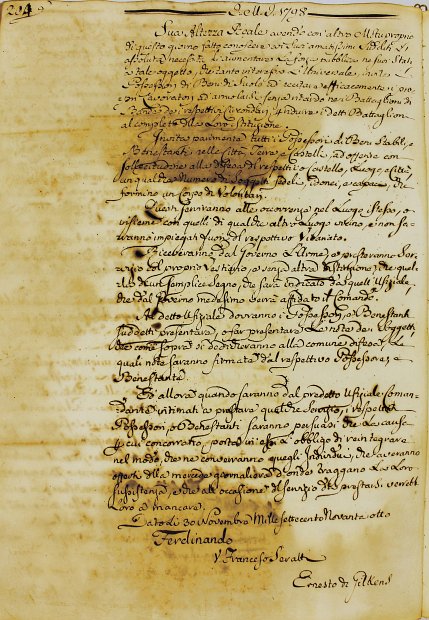 204
1798
Sua Altezza Reale avendo con altro Motu proprio
di questo giorno fatto conoscere ai Suoi amatissimi Sudditi l'
assoluta necessità d'aumentare la forza pubblica ne suoi Stati
tale oggetto, che tanto interessa l'Universale, invita i
Possessori di Beni di Suolo ad eccitare efficacemente i pro
pri Lavoratori ad arruolarsi senza ritardo nei Battaglioni di
Bande dei respettivi Circondari, e ridurre i detti Battaglioni
al completo della Loro Istituzione.
Invita parimente tutti i Possessori di Beni Stabili, e
Benestanti nelle Città, Terre, e Castelli, ad offerire con
sollecitudine alla difesa del respettivo Castello, Luogo, o Città
un qualche Numero di Soggetti fedeli, idonei, e capaci, che
formino un Corpo di Volontari.
Questi serviranno alle occorrenze nel Luogo stesso, o
vissieme con quelli di qualche altro Luogo vicino, e non sa
ranno impiegati fuori del respettivo Vicariato.
Riceveranno dal Governo l'Armi, e presteranno Ser
vizio col proprio Vestiario, e senza altra distinzione, che quel
la d'un semplice segno, che sarà indicato da quell'Ufiziale,
che dal Governo medesimo verrà affidato il Comando.
Al detto Ufiziale dovranno i Possessori, e Benestanti
suddetti presentare, o far presentare le note dei Soggetti,
che come sopra si decideranno alla comune difesa, Le
quali note saranno firmate dal respettivo Possessore, e
Benestante.
Ed allora quando saranno dal predetto Ufiziale Coman
dante intimati a prestare qualche Servizio, i respettivi
Possessori, e Benestanti saranno persuasi che La causa
a cui concorrono, porta in essi L'obbligo di reintegrare
nel modo, che ne converranno quegli Individui, che averanno
offerti della mercede giornaliera d'onde traggano La Loro
sussistenza, e che all'occasione del servizio da prestarsi verrebbe
Loro a mancare.
Dato li 30 Novembre Mille settecento Novanta otto
Ferdinando
V. Francesco Seratti
Ernesto di Gilkens